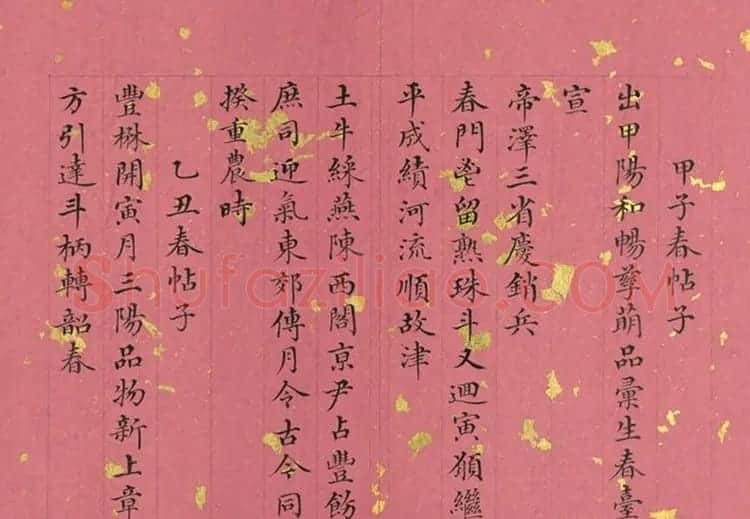 甲子春帖子
出甲陽和暢孳萌品彙生春臺
宣
帝澤三省慶銷兵
春門鬯留熟珠斗又迴寅願繼
平成績河流順故津
土牛綵燕陳西閣亰尹占豐飭
庶司迎氣東郊傳月令古今同
揆重農時
乙丑春帖子
豐楙開寅月三陽品物新上章
方引達斗柄轉韶春
Shufaziliao.COM